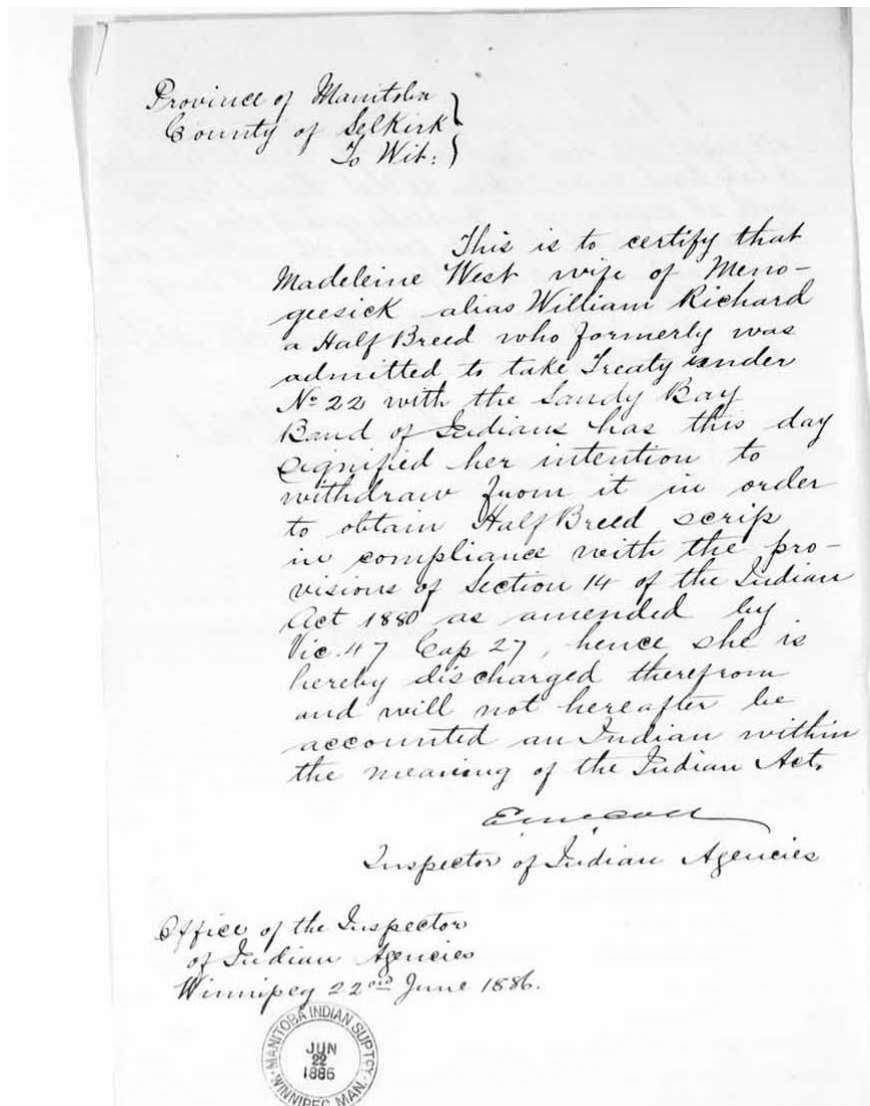 Province of Manitoba
County of Selkirk
To Wit:
This is to certify that
Madeleine West wife of Meno-
geesick alias William Richard
a Half Breed who formerly was
admitted to take Treaty under
No 22 with the Sandy Bay
Band of Indians has this day
signified her intention to
withdraw from it in order
to obtain Half Breed scrip
in compliance with the pro-
visions of Section 14 of the Indian
Act 1880 as amended by
Vic. 47 Cap 27, hence she is
hereby discharged therefrom
and will not hereafter be
accounted an Indian within
the meaning of the Indian Act.
Inspector of Indian Agencies
Office of the Inspector
of Indian Agencies
Winnipeg 22nd June 1886.
MANITOBA INDIAN SUPTCY.
JUN
22
1886
WINNIPEG MAN.